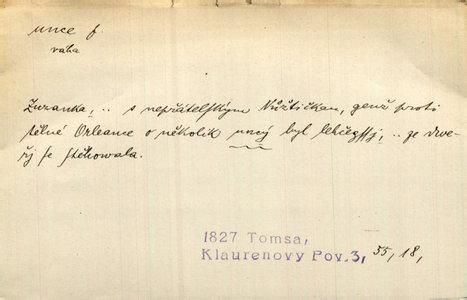 unce f.
váha
Zuzanka, .. s nepřátelským Nůžtičkau, genž proti
tělné Orleance o několik uncý byl lehčegssj, .. ze dwe-
řj se stěhowala.
1827 Tomsa,
Klaurenovy Pov. 3, 55, 18,